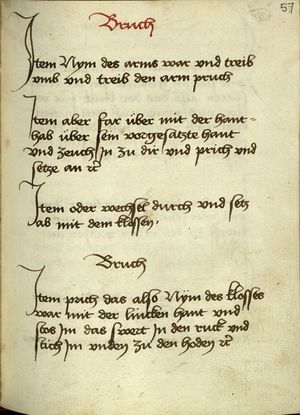 57
Bruch
Item Nym des arms war vnd treib
vmb vnd treib den arm pruch
Item aber far über mit der hant=
hab über sein vorgesätzte hant
vnd zeuch In zu dir vnd prich vnd
setze an rc
Item oder wechsel durch vnd setz
ab mit dem klossen,
Bruch
Item prich das also Nÿm des klosses
war mit der lincken hant vnd
stos im das swert In den ruck vnd
stich Im vnden zu den hoden rc